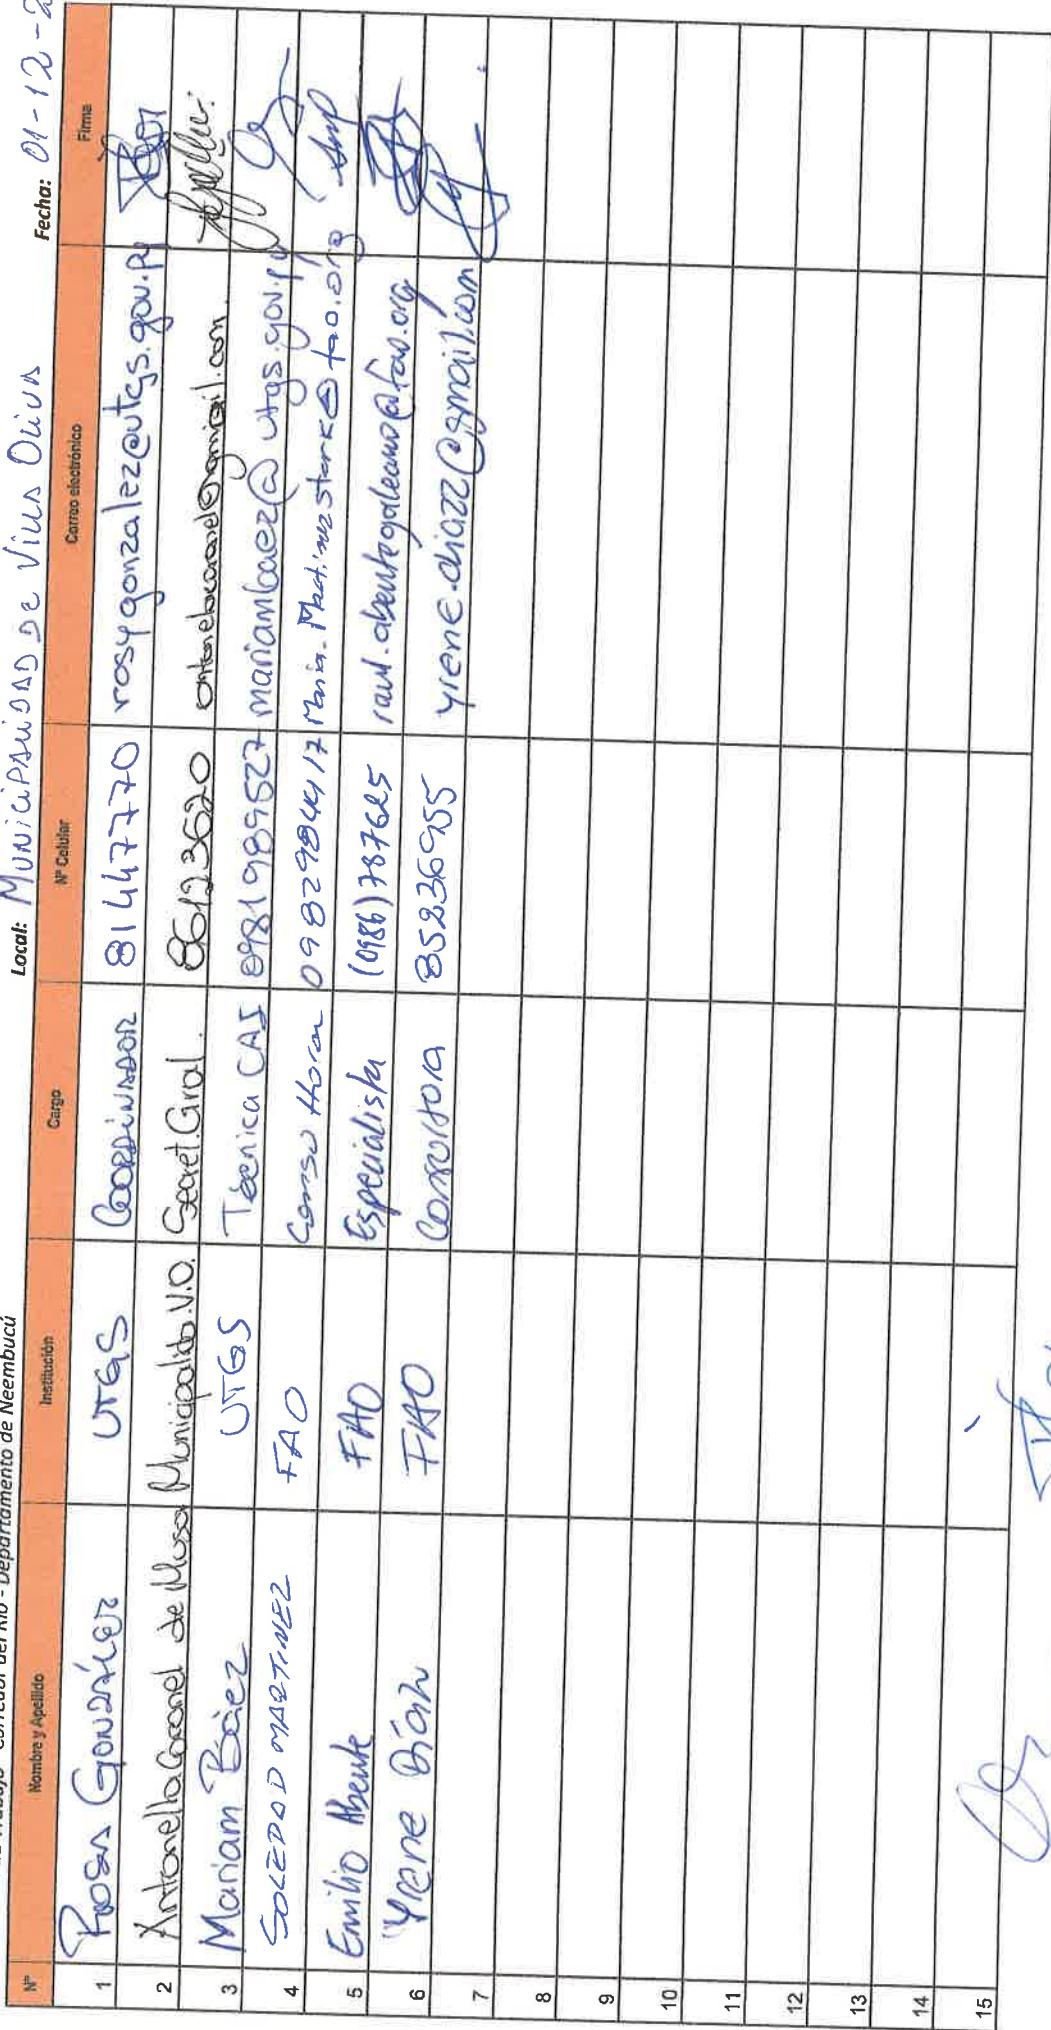 Trabajo - Corredor del Río - Departamento de Neembucú
Local: MUNICIPALIDAD DE VILLA OLIVA Fecha: 01-12-2
N° Nombre y Apellido Institución Cargo N° Celular Correo electrónico Firma
1 ROSA GONZÁLEZ UTGS COORDINADOR 81447770 rosygonzalez@utgs.gov.py
2 Antonella Coronel de Musa Municipalida. V.O. Secret. Gral. 86123620
3 Mariam Báez UTGS Técnica CAI 0981989527 mariambaez@utgs.gov.py
4 SOLEDAD MARTINEZ FAO 0982984417 Maria.Martinezstark@fao.org
5 Emilio Abente FAO Especialista (0986)787625 raul.abentegaleano@fao.org
6 Yrene Díaz FAO Consultora 85236955 yrene.diazz@gmail.com
7
8
9
10
11
12
13
14
15